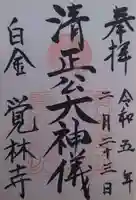 奉拝
令和五年
二月二十三日
清正公大神儀
白金
覚林寺